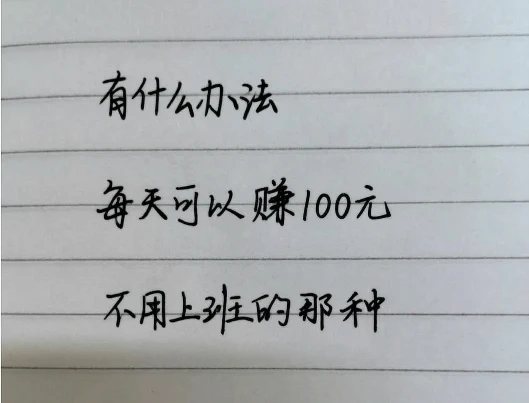 有什么办法
每天可以赚100元
不用上班的那种